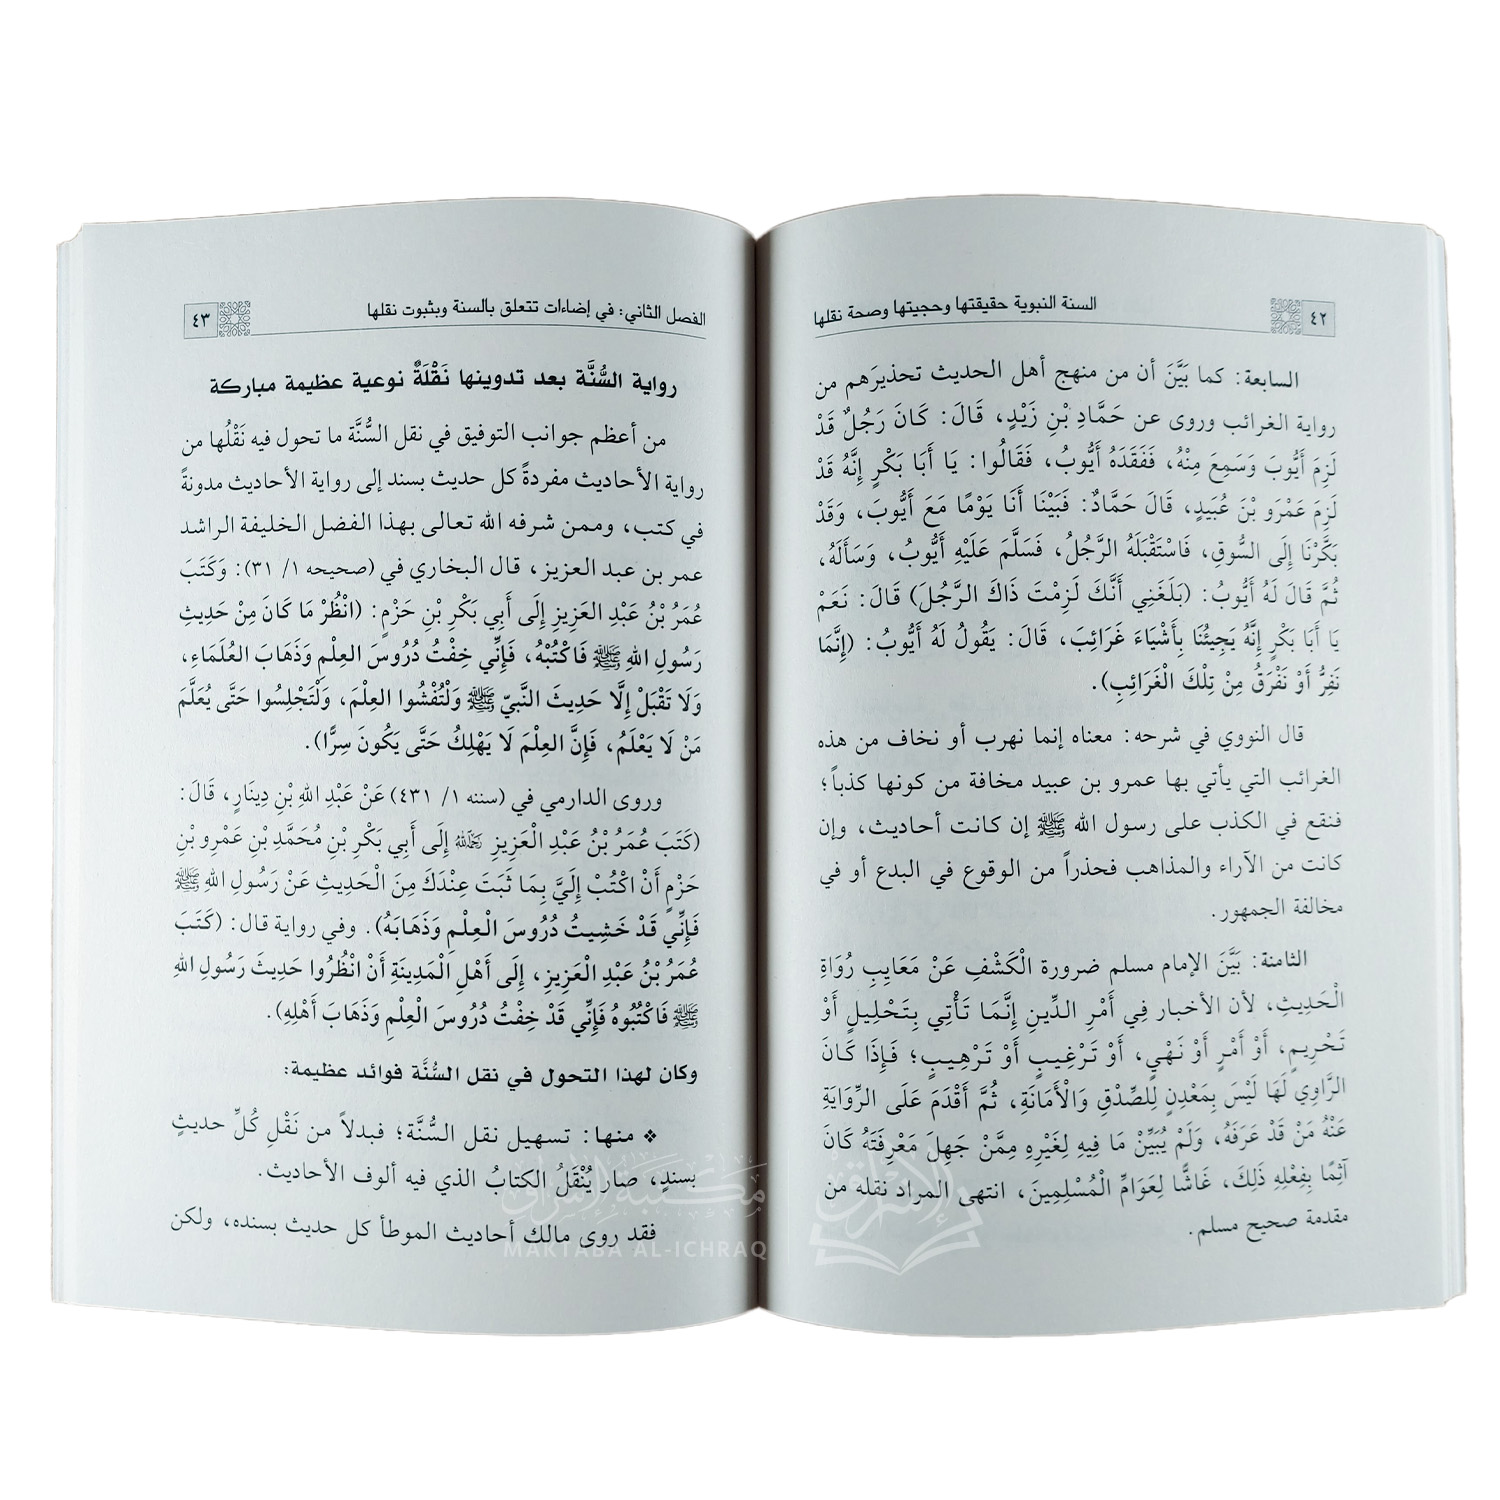 ٤٢ السنة النبوية حقيقتها وحجيتها وصحة نقلها
السابعة: كما بَيَّنَ أن من منهج أهل الحديث تحذيرَهم من
رواية الغرائب وروى عن حَمَّادِ بْنِ زَيْدٍ، قَالَ: كَانَ رَجُلٌ قَدْ
لَزِمَ أَيُّوبَ وَسَمِعَ مِنْهُ، فَفَقَدَهُ أَيُّوبُ، فَقَالُوا: يَا أَبَا بَكْرٍ إِنَّهُ قَدْ
لَزِمَ عَمْرَو بْنَ عُبَيدٍ، قَالَ حَمَّادٌ: فَبَيْنَا أَنَا يَوْمًا مَعَ أَيُّوبَ، وَقَدْ
بَكَّرْنَا إِلَى السُّوقِ، فَاسْتَقْبَلَهُ الرَّجُلُ، فَسَلَّمَ عَلَيْهِ أَيُّوبُ، وَسَأَلَهُ،
ثُمَّ قَالَ لَهُ أَيُّوبُ: (بَلَغَنِي أَنَّكَ لَزِمْتَ ذَاكَ الرَّجُلَ) قَالَ: نَعَمْ
يَا أَبَا بَكْرٍ إِنَّهُ يَجِيئُنَا بِأَشْيَاءَ غَرَائِبَ، قَالَ: يَقُولُ لَهُ أَيُّوبُ: (إِنَّمَا
نَفِرُّ أَوْ نَفْرَقُ مِنْ تِلْكَ الْغَرَائِبِ).
قال النووي في شرحه: معناه إنما نهرب أو نخاف من هذه
الغرائب التي يأتي بها عمرو بن عبيد مخافة من كونها كذباً؛
فنقع في الكذب على رسول الله ﷺ إن كانت أحاديث، وإن
كانت من الآراء والمذاهب فحذراً من الوقوع في البدع أو في
مخالفة الجمهور.
الثامنة: بَيَّنَ الإمام مسلم ضرورة الْكَشْفِ عَنْ مَعَايِبِ رُوَاةِ
الْحَدِيثِ، لأن الأخبار فِي أَمْرِ الدِّينِ إِنَّمَا تَأْتِي بِتَحْلِيلٍ أَوْ
تَحْرِيمٍ، أَوْ أَمْرٍ أَوْ نَهْيٍ، أَوْ تَرْغِيبٍ أَوْ تَرْهِيبٍ؛ فَإِذَا كَانَ
الرَّاوِي لَهَا لَيْسَ بِمَعْدِنٍ لِلصِّدْقِ وَالْأَمَانَةِ، ثُمَّ أَقْدَمَ عَلَى الرِّوَايَةِ
عَنْهُ مَنْ قَدْ عَرَفَهُ، وَلَمْ يُبَيِّنْ مَا فِيهِ لِغَيْرِهِ مِمَّنْ جَهِلَ مَعْرِفَتَهُ كَانَ
آثِمًا بِفِعْلِهِ ذَلِكَ، غَاشًّا لِعَوَامِّ الْمُسْلِمِينَ، انتهى المراد نقله من
مقدمة صحيح مسلم.
الفصل الثاني: في إضاءات تتعلق بالسنة وبثبوت نقلها ٤٣
رواية السُّنَّة بعد تدوينها نَقْلَةٌ نوعية عظيمة مباركة
من أعظم جوانب التوفيق في نقل السُّنَّة ما تحول فيه نَقْلُها من
رواية الأحاديث مفردةً كل حديث بسند إلى رواية الأحاديث مدونةً
في كتب، وممن شرفه الله تعالى بهذا الفضل الخليفة الراشد
عمر بن عبد العزيز، قال البخاري في (صحيحه ١/ ٣١): وَكَتَبَ
عُمَرُ بْنُ عَبْدِ العَزِيزِ إِلَى أَبِي بَكْرِ بْنِ حَزْمٍ: (انْظُرْ مَا كَانَ مِنْ حَدِيثِ
رَسُولِ اللهِ ﷺ فَاكْتُبْهُ، فَإِنِّي خِفْتُ دُرُوسَ العِلْمِ وَذَهَابَ العُلَمَاءِ،
وَلَا تَقْبَلْ إِلَّا حَدِيثَ النَّبِيِّ ﷺ وَلْتُفْشُوا العِلْمَ، وَلْتَجْلِسُوا حَتَّى يُعَلَّمَ
مَنْ لَا يَعْلَمُ، فَإِنَّ العِلْمَ لَا يَهْلِكُ حَتَّى يَكُونَ سِرًّا).
وروى الدارمي في (سننه ١/ ٤٣١) عَنْ عَبْدِ اللهِ بْنِ دِينَارٍ، قَالَ:
(كَتَبَ عُمَرُ بْنُ عَبْدِ الْعَزِيزِ رحمه الله إِلَى أَبِي بَكْرِ بْنِ مُحَمَّدِ بْنِ عَمْرِو بْنِ
حَزْمٍ أَنْ اكْتُبْ إِلَيَّ بِمَا ثَبَتَ عِنْدَكَ مِنَ الْحَدِيثِ عَنْ رَسُولِ اللهِ ﷺ
فَإِنِّي قَدْ خَشِيتُ دُرُوسَ الْعِلْمِ وَذَهَابَهُ). وفي رواية قال: (كَتَبَ
عُمَرُ بْنُ عَبْدِ الْعَزِيزِ، إِلَى أَهْلِ الْمَدِينَةِ أَنْ انْظُرُوا حَدِيثَ رَسُولِ اللهِ
ﷺ فَاكْتُبُوهُ فَإِنِّي قَدْ خِفْتُ دُرُوسَ الْعِلْمِ وَذَهَابَ أَهْلِهِ).
وكان لهذا التحول في نقل السُّنَّة فوائد عظيمة:
❖ منها: تسهيل نقل السُّنَّة؛ فبدلاً من نَقْلِ كُلِّ حديثٍ
بسندٍ، صار يُنْقَلُ الكتابُ الذي فيه ألوف الأحاديث.
فقد روى مالك أحاديث الموطأ كل حديث بسنده، ولكن
مكتبة الإشراق
MAKTABA AL-ICHRAQ
الإشراق